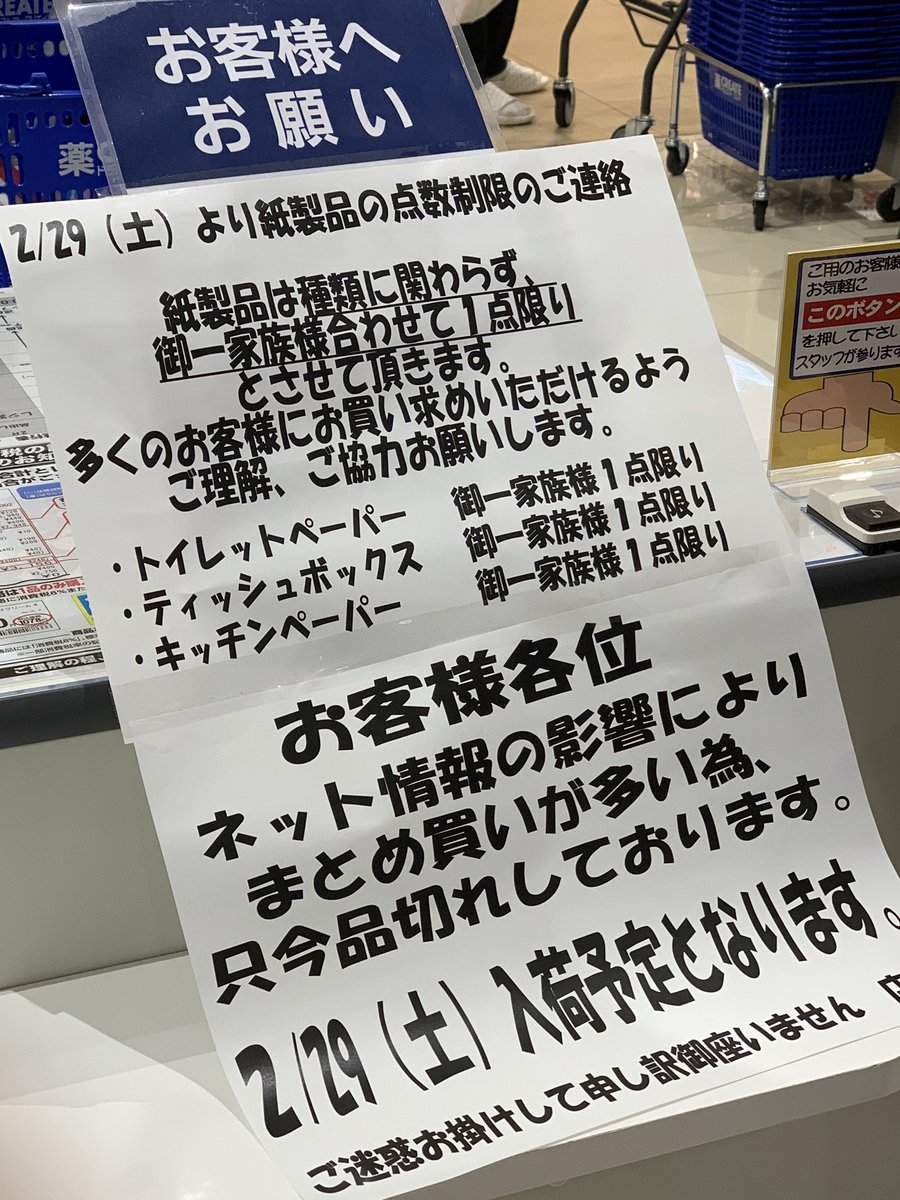 お客様へ
お願い
2/29（土）より紙製品の点数制限のご連絡
紙製品は種類に関わらず、
御一家族様合わせて1点限り
とさせて頂きます。
多くのお客様にお買い求めいただけるよう
ご理解、ご協力お願いします。
・トイレットペーパー 御一家族様1点限り
・ティッシュボックス 御一家族様1点限り
・キッチンペーパー 御一家族様1点限り
お客様各位
ネット情報の影響により
まとめ買いが多い為、
只今品切れしております。
2/29（土）入荷予定となります。
ご迷惑お掛けして申し訳御座いません
ご用のお客様
お気軽に
このボタン
を押して下さい
スタッフが参ります
CREATE
CREATE
薬